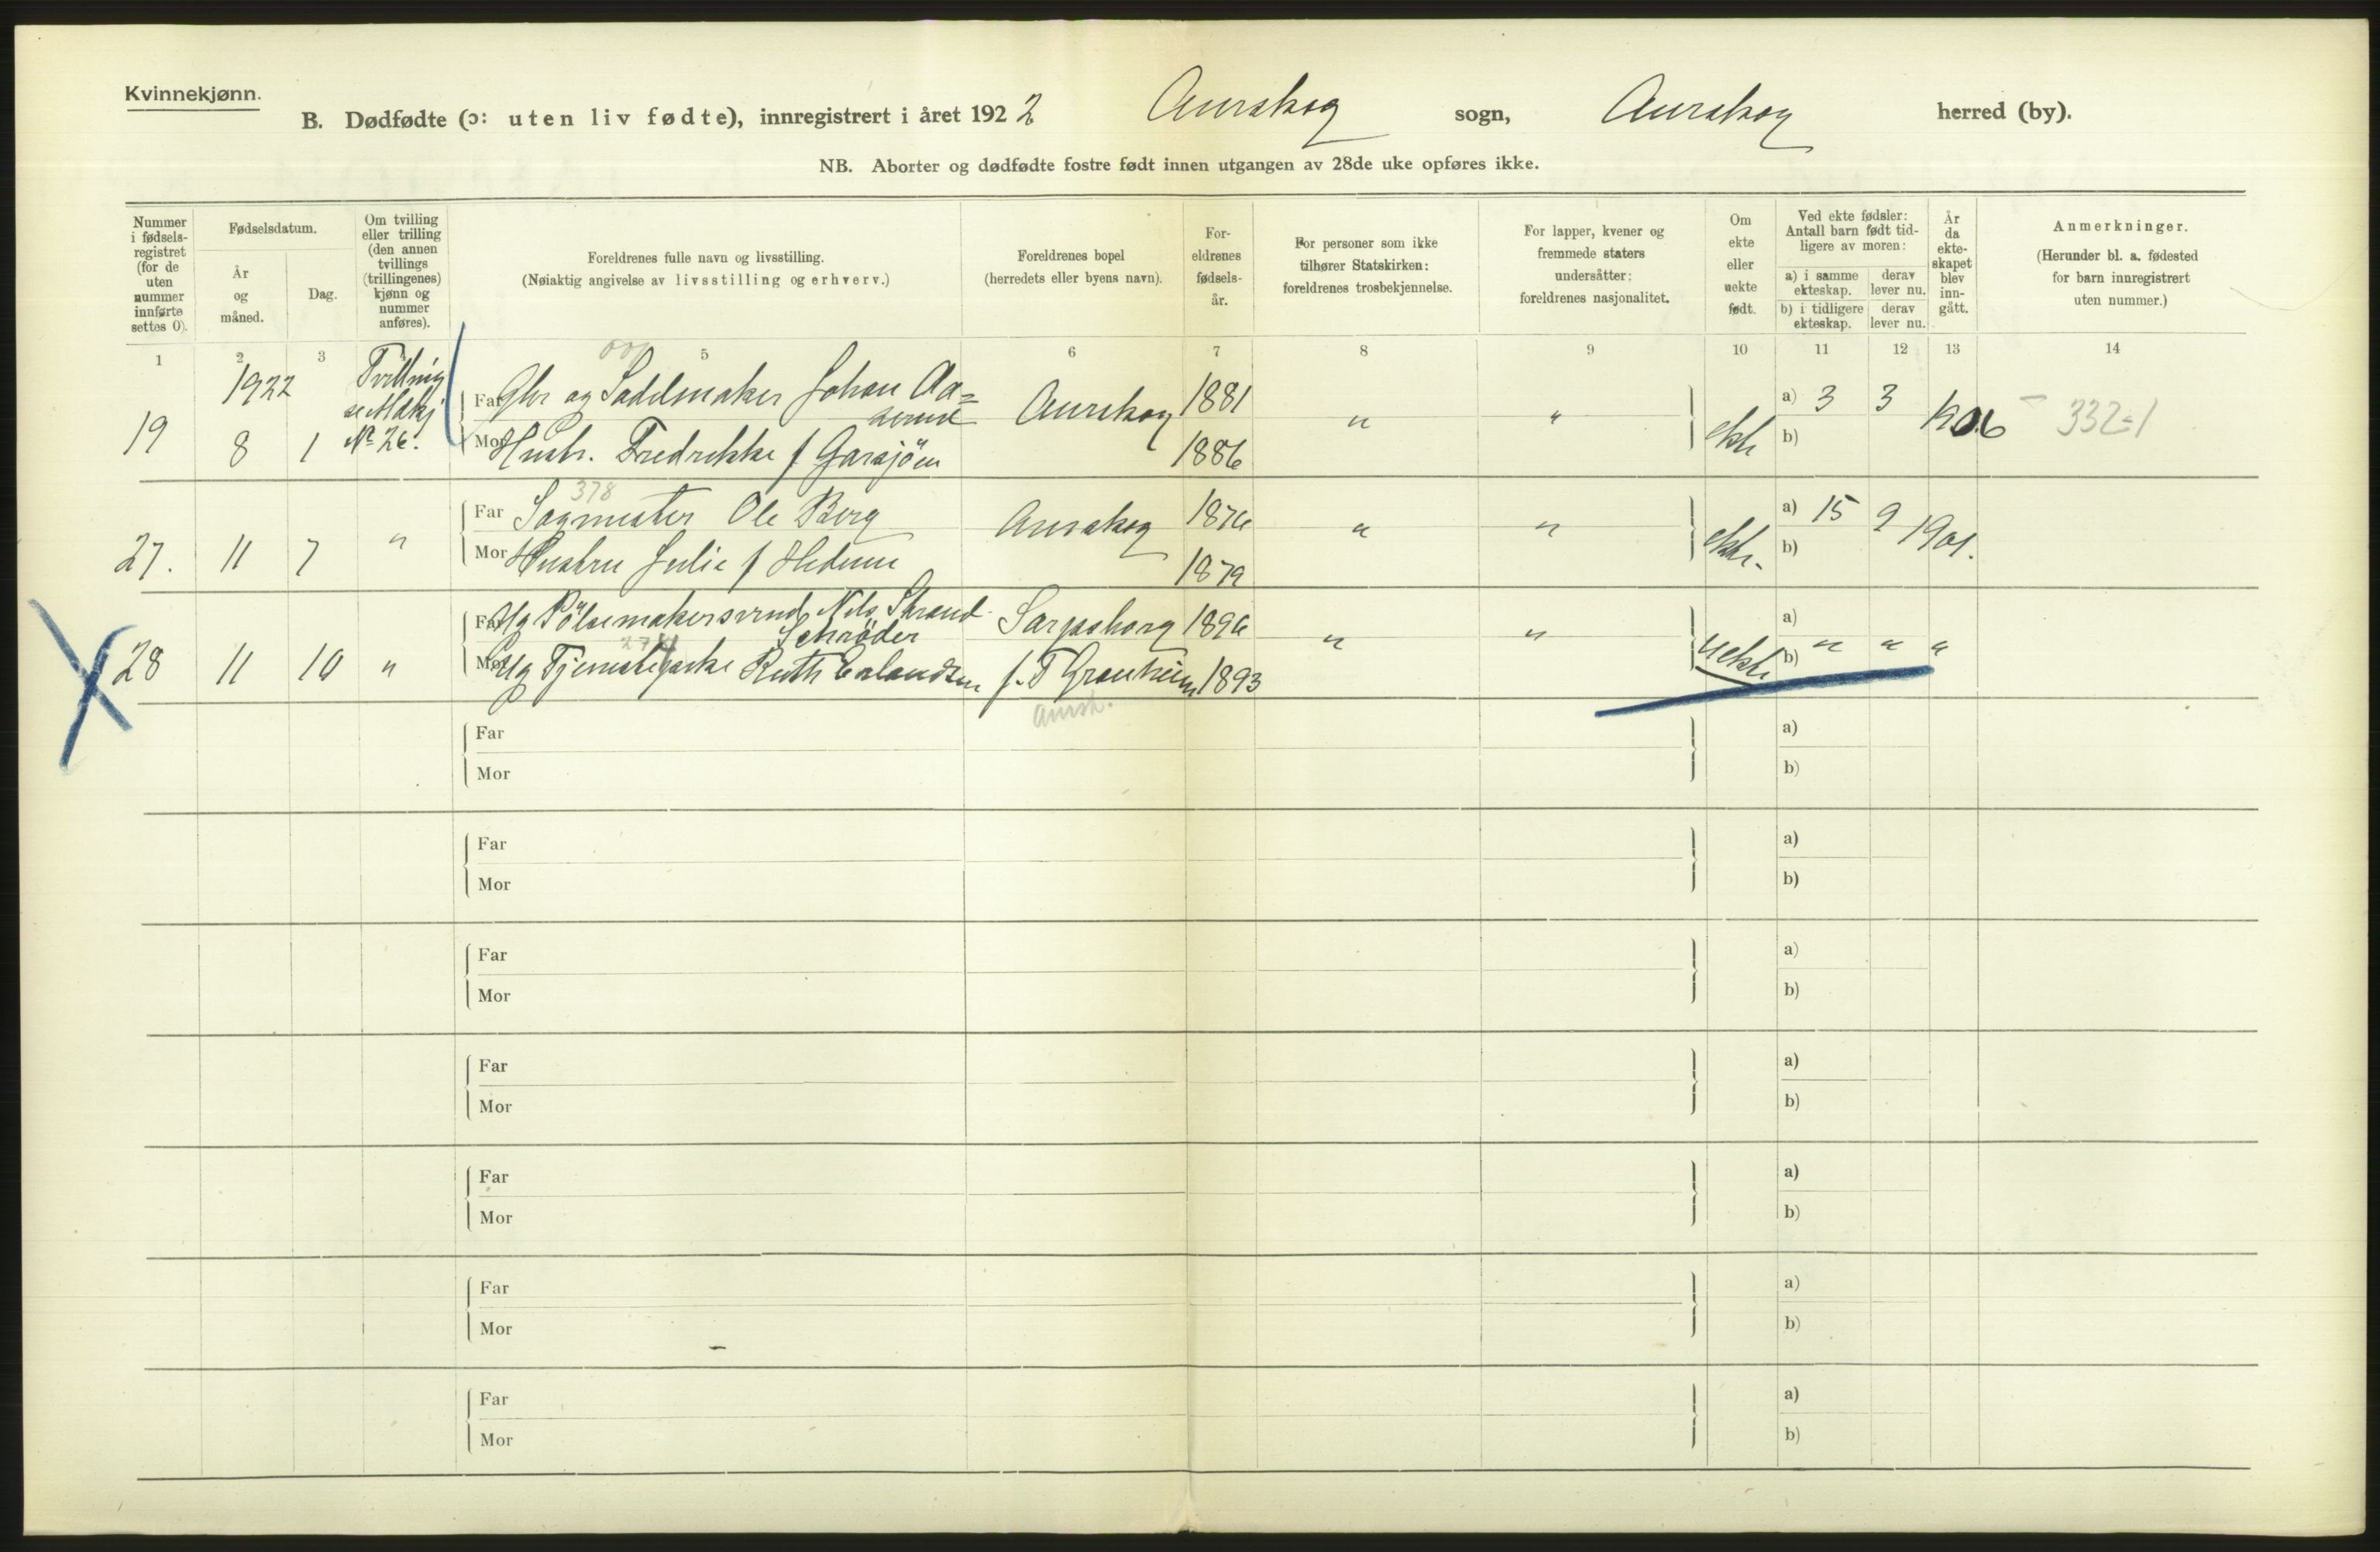 Kvinnekjønn.
B. Dødfødte (ɔ: uten liv fødte), innregistrert i året 1922 Aurskog sogn, Aurskog herred (by).
NB. Aborter og dødfødte fostre født innen utgangen av 28de uke opføres ikke.
Nummer i fødsels-registret (for de uten nummer innførte settes 0).
Fødselsdatum.
År og måned.
Dag.
Om tvilling eller trilling (den annen tvillings (trillingenes) kjønn og nummer anføres).
Foreldrenes fulle navn og livsstilling.
(Nøiaktig angivelse av livsstilling og erhverv.)
Foreldrenes bopel
(herredets eller byens navn).
For-eldrenes fødsels-år.
For personer som ikke tilhører Statskirken: foreldrenes trosbekjennelse.
For lapper, kvener og fremmede staters undersåtter: foreldrenes nasjonalitet.
Om ekte eller uekte født.
Ved ekte fødsler: Antall barn født tid-ligere av moren:
a) i samme ekteskap. derav lever nu.
b) i tidligere ekteskap. derav lever nu.
År da ekte-skapet blev inn-gått.
Anmerkninger.
(Herunder bl. a. fødested for barn innregistrert uten nummer.)
1 2 3 5 6 7 8 9 10 11 12 13 14
1922 Tvilling
se Mdkj
№ 26.
19 8 1
Far Gbr og Sadelmaker Johan Aa=
serud Aurskog 1881 " "
Mor Hustr. Fredrikke f Garsjöen 1886
ekte a) 3 3 1906 332=1
b)
378
27. 11 7 "
Far Sagmester Ole Berg Aurskog 1876 " "
Mor Hustru Julie f Hedum 1879
ekte. a) 15 9 1901.
b)
28 11 10 "
Far Ug Pölsemakersvend Nils Strand
Schröder Sarpsborg 1896 " "
274
Mor Ug Tjenestepike Ruth Erlandsen f. T Granheim 1893
Aursk.
uekte a)
b) " " "
Far a)
Mor b)
Far a)
Mor b)
Far a)
Mor b)
Far a)
Mor b)
Far a)
Mor b)
Far a)
Mor b)
Far a)
Mor b)